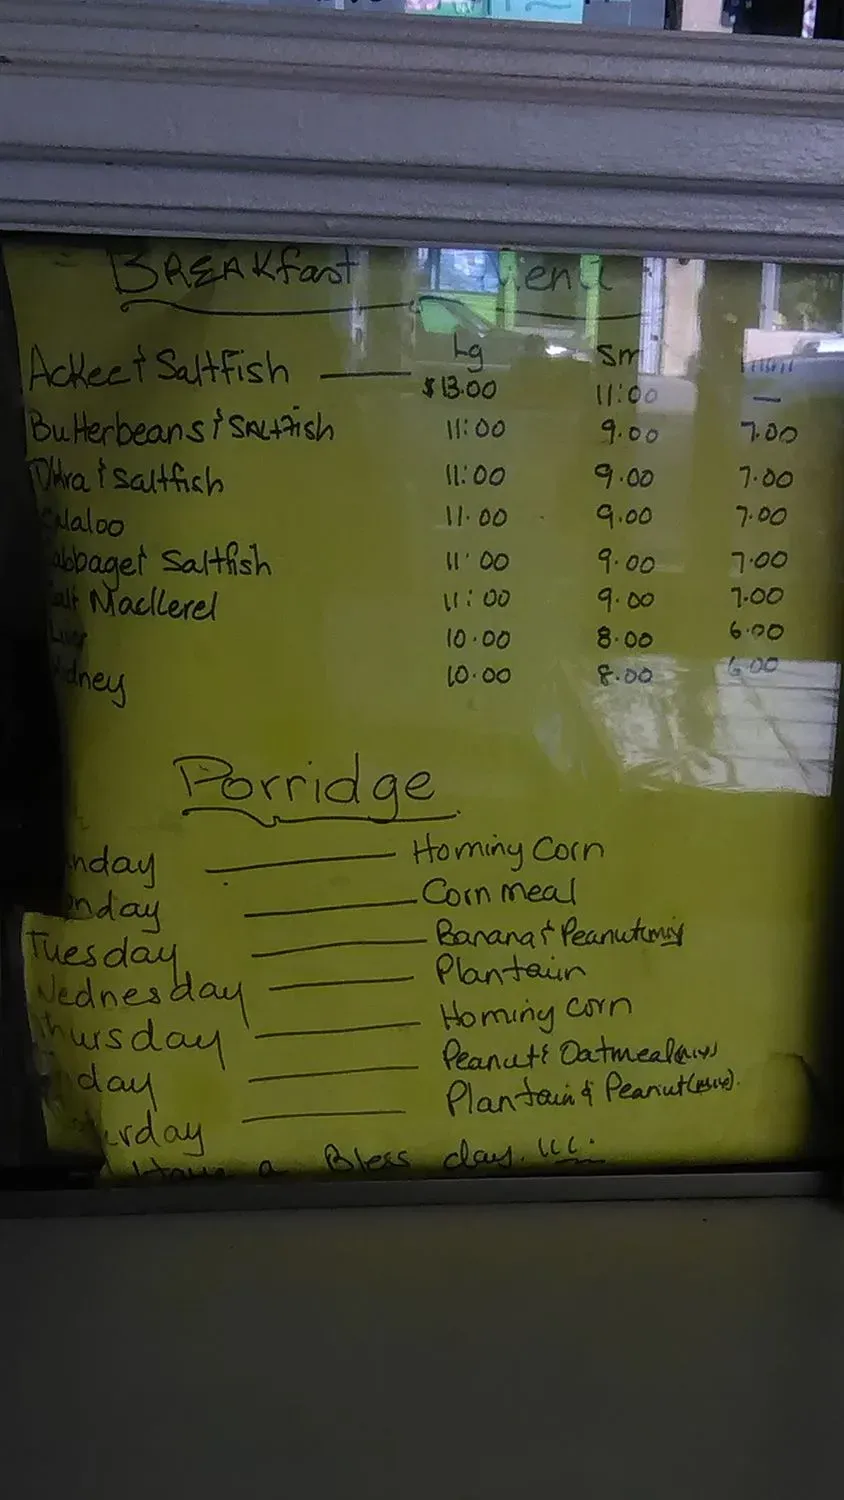 BREAKfast Menu
Lg Sm mini
Ackee & Saltfish — $13.00 11:00 —
Butterbeans & SALTFish 11:00 9.00 7.00
Okra & Saltfish 11:00 9.00 7.00
alaloo 11.00 9.00 7.00
abbage & Saltfish 11.00 9.00 7.00
Salt Mackerel 11:00 9.00 7.00
Liver 10.00 8.00 6.00
idney 10.00 8.00 6.00
Porridge
nday — Hominy Corn
onday — Corn meal
Tuesday — Banana & Peanut (mix)
Wednesday — Plantain
Thursday — Hominy corn
day — Peanut & Oatmeal (mix)
urday — Plantain & Peanut (mix).
Have a Bless day.